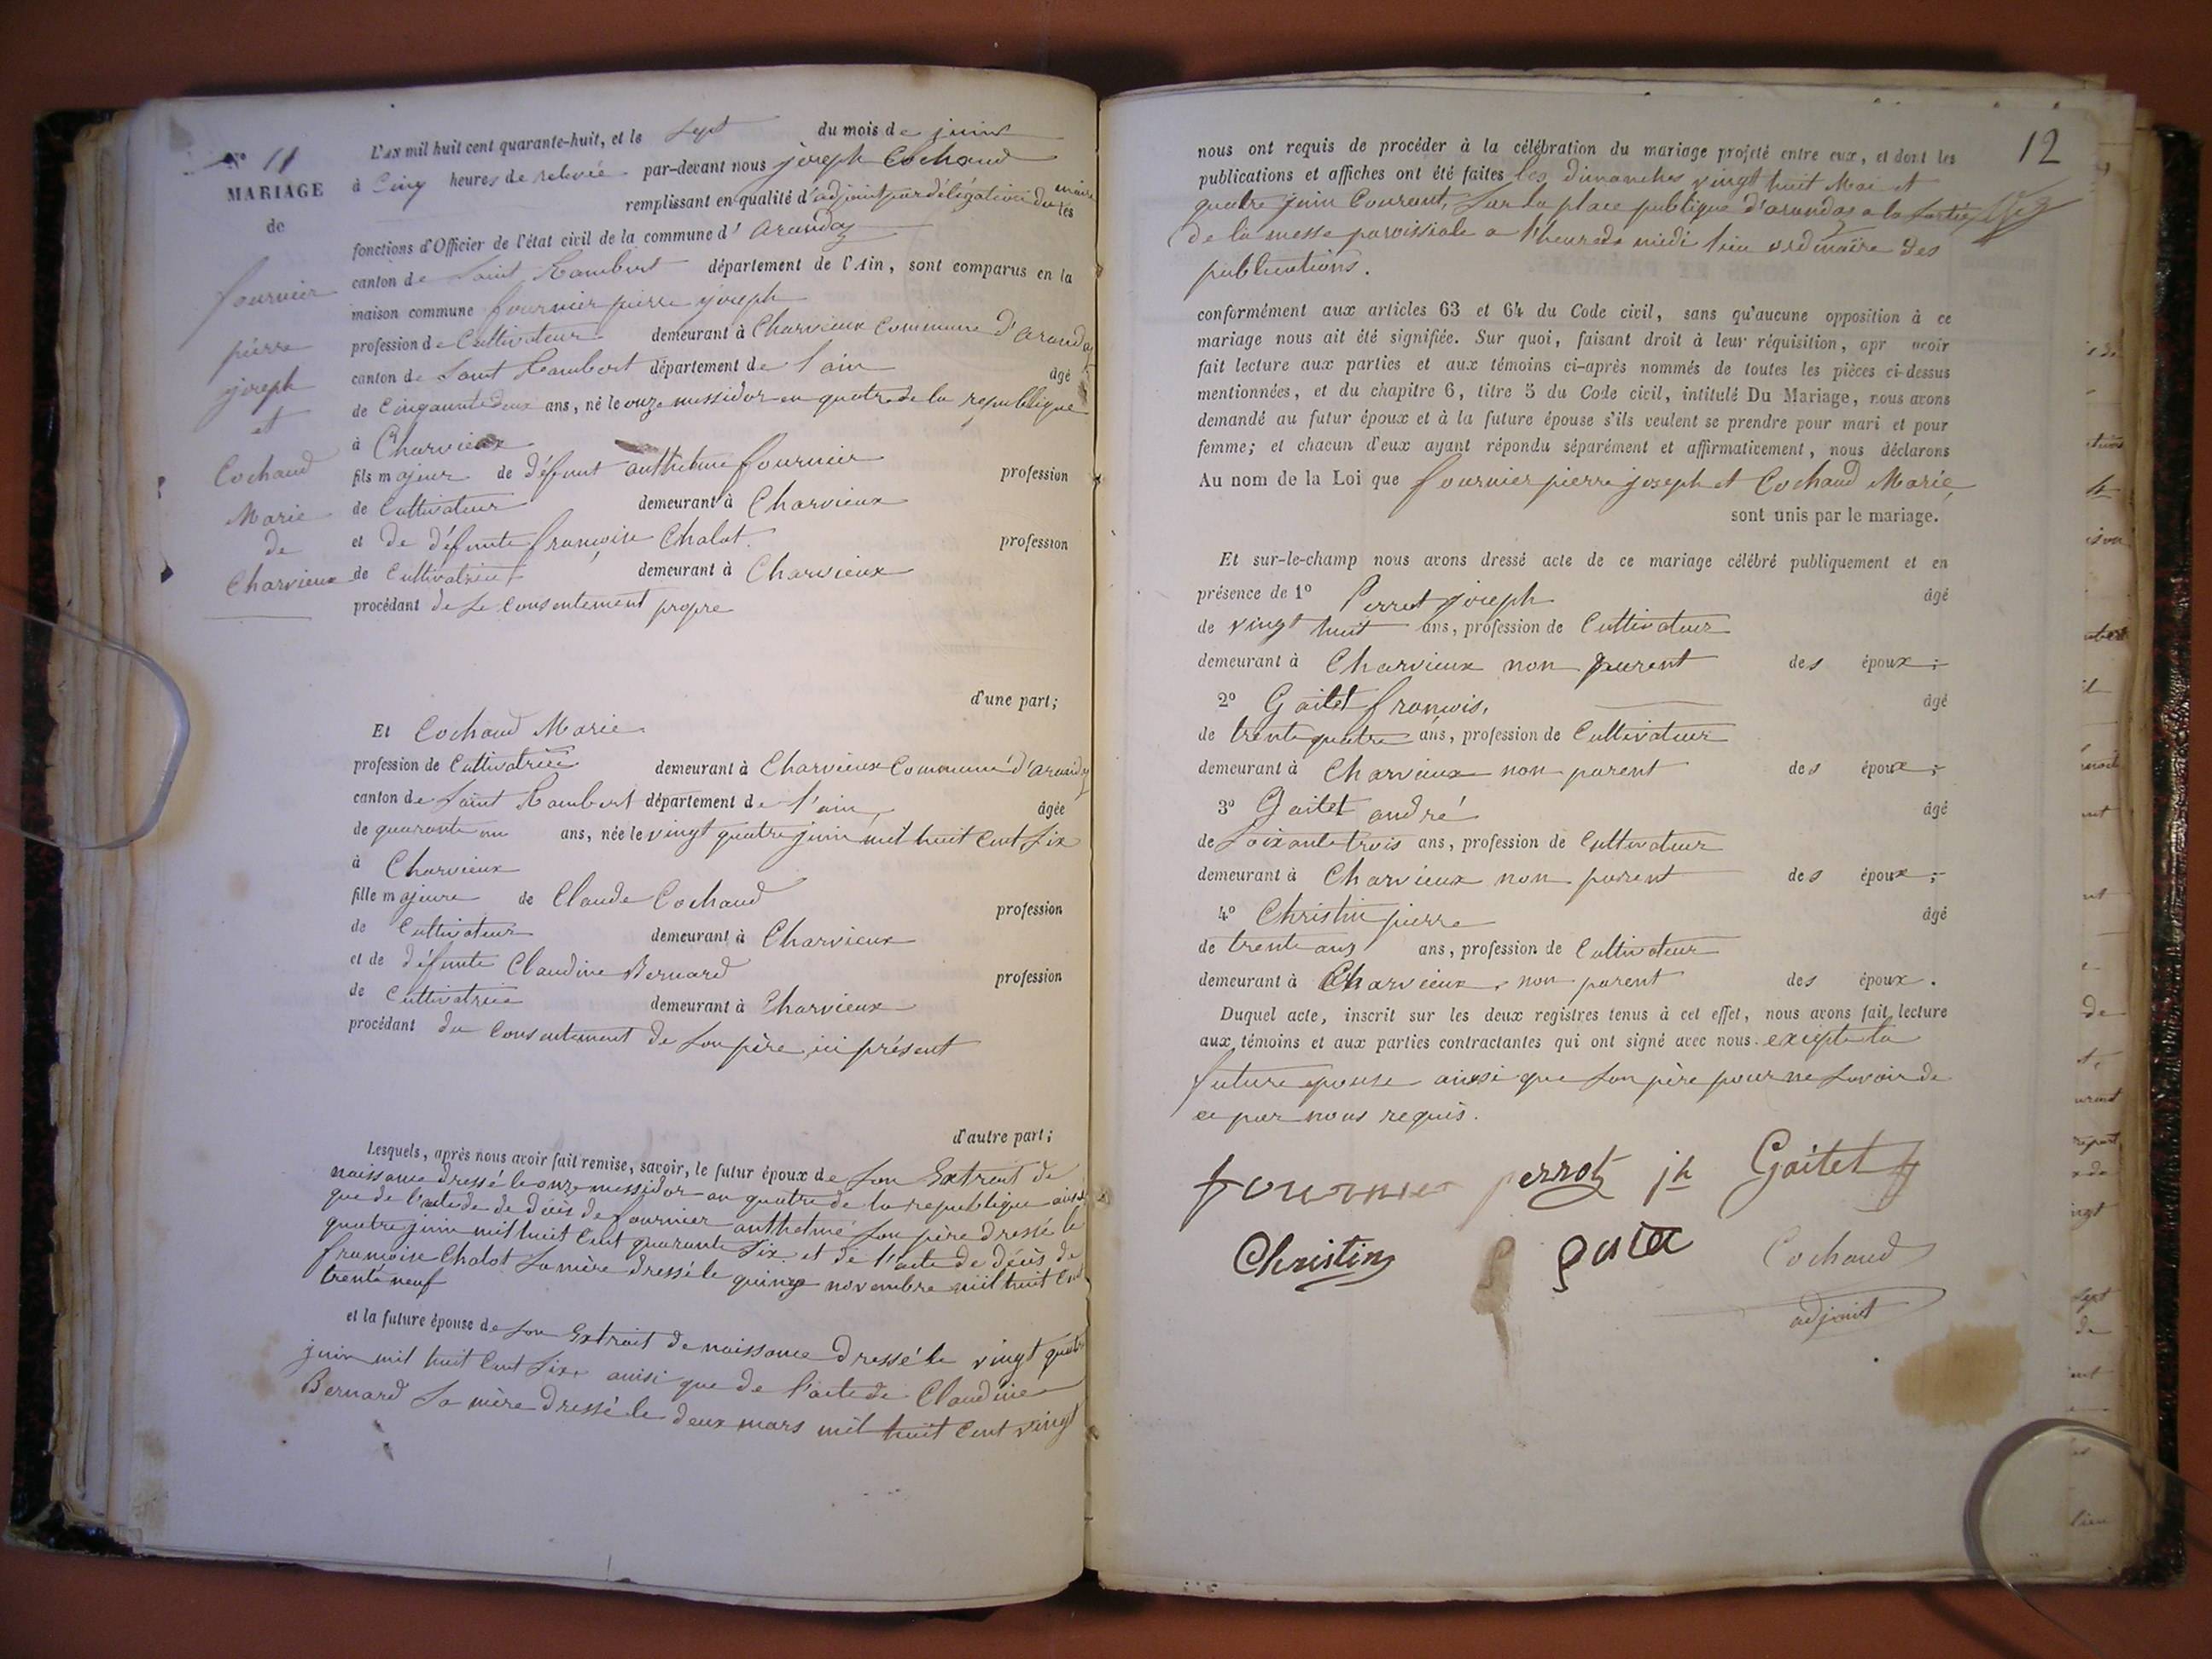 N° 11
MARIAGE
de
fournier
pierre
joseph
et
Cochaud
Marie
de
Charvieux
L'AN mil huit cent quarante-huit, et le sept du mois de juin
à Cinq heures de relevée par-devant nous joseph Cochaud
remplissant en qualité d'adjoint par délégation du maire les
fonctions d'Officier de l'état civil de la commune d'arandaz
canton de Saint Rambert département de l'Ain, sont comparus en la
maison commune fournier pierre joseph
profession de Cultivateur demeurant à Charvieux Commune d'arandaz
canton de Saint Rambert département de l'ain âgé
de Cinquante deux ans, né le onze messidor an quatre de la république
à Charvieux
fils majeur de défunt anthelme fournier profession
de Cultivateur demeurant à Charvieux
et de défunte françoise Chalot profession
de Cultivatrice demeurant à Charvieux
procédant de Le Consentement propre
d'une part;
Et Cochaud Marie
profession de Cultivatrice demeurant à Charvieux Commune d'arandaz
canton de Saint Rambert département de l'ain âgée
de quarante un ans, née le vingt quatre juin mil huit Cent Six
à Charvieux
fille majeure de Claude Cochaud profession
de Cultivateur demeurant à Charvieux
et de défunte Claudine Bernard profession
de Cultivatrice demeurant à Charvieux
procédant du Consentement de Son père ici présent
d'autre part;
Lesquels, après nous avoir fait remise, savoir, le futur époux de Son Extrait de
naissance dressé le onze messidor an quatre de la republique ainsi
que de l'acte de décès de fournier anthelme Son père dressé le
quatre juin mil huit Cent quarante Six et de l'acte de décès de
françoise Chalot Sa mère dressé le quinze novembre mil huit Cent
trente neuf
et la future épouse de Son Extrait de naissance dressé le vingt quatre
juin mil huit Cent Six ainsi que de l'acte de Claudine
Bernard Sa mère dressé le deux mars mil huit Cent vingt
12
nous ont requis de procéder à la célébration du mariage projeté entre eux, et dont les
publications et affiches ont été faites les dimanches vingt huit Mai et
quatre juin Courant, Sur la place publique d'arandaz a la Sortie
de la messe paroissiale a l'heure de midi lieu ordinaire des
publications.
conformément aux articles 63 et 64 du Code civil, sans qu'aucune opposition à ce
mariage nous ait été signifiée. Sur quoi, faisant droit à leur réquisition, apr avoir
fait lecture aux parties et aux témoins ci-après nommés de toutes les pièces ci-dessus
mentionnées, et du chapitre 6, titre 5 du Code civil, intitulé Du Mariage, nous avons
demandé au futur époux et à la future épouse s'ils veulent se prendre pour mari et pour
femme; et chacun d'eux ayant répondu séparément et affirmativement, nous déclarons
Au nom de la Loi que fournier pierre joseph et Cochaud Marie
sont unis par le mariage.
Et sur-le-champ nous avons dressé acte de ce mariage célébré publiquement et en
présence de 1° Perrot joseph âgé
de vingt huit ans, profession de Cultivateur
demeurant à Charvieux non parent des époux;
2° Gaitet françois, âgé
de trente quatre ans, profession de Cultivateur
demeurant à Charvieux non parent des époux;
3° Gaitet andré âgé
de Soixante trois ans, profession de Cultivateur
demeurant à Charvieux non parent des époux;
4° Christin pierre âgé
de trente ans ans, profession de Cultivateur
demeurant à Charvieux, non parent des époux.
Duquel acte, inscrit sur les deux registres tenus à cet effet, nous avons fait lecture
aux témoins et aux parties contractantes qui ont signé avec nous. excepté la
future epouse ainsi que Son père pour ne Savoir de
ce par nous requis.
fournier perrot jh Gaitet f
Christin Cochaud
adjoint